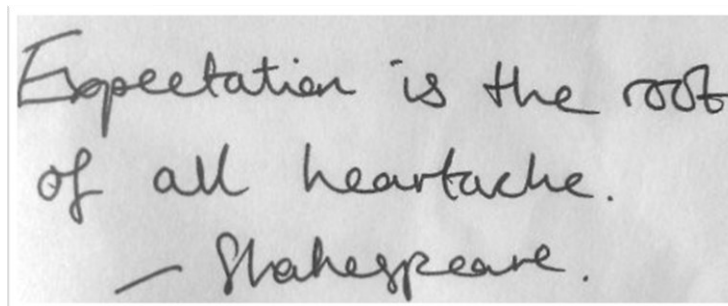 Expectation is the root
of all heartache.
— Shakespeare.